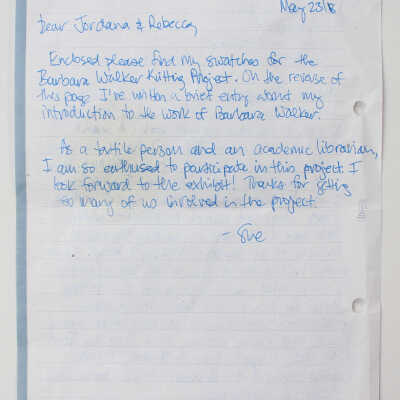 May 23/18
Dear Jordana & Rebecca,
Enclosed please find my swatches for the
Barbara Walker Knitting Project. On the reverse of
this page I've written a brief entry about my
introduction to the work of Barbara Walker.
As a textile person and an academic librarian,
I am so enthused to participate in this project. I
look forward to the exhibit! Thanks for getting
so many of us involved in the project.
- Sue